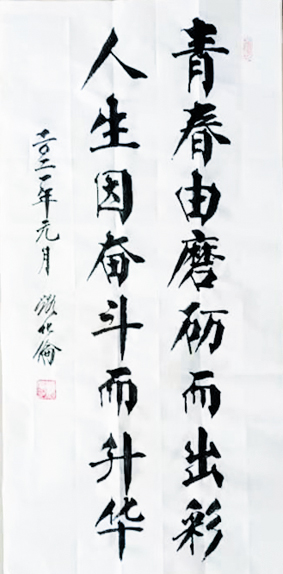 青春由磨砺而出彩
人生因奋斗而升华
二〇二一年元月